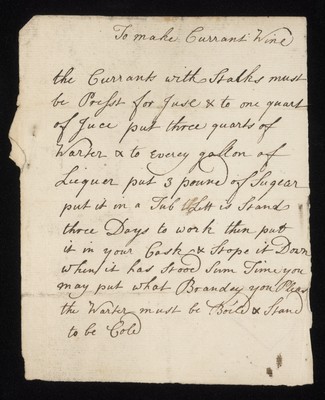 To make Currant Wine
the Currants with Stalks must
be Presst for Juse & to one quart
of Juce put three quarts of
Warter & to Everey gallon of
Liequer put 3 pound of Sugear
put it in a Tub & Lett is Stand
three Days to work then put
it in your Cask & Stope it Down
when it has Stood Sum Time you
may put what Brandey you Pleas
the Warter must be Boild & Stand
to be Cold